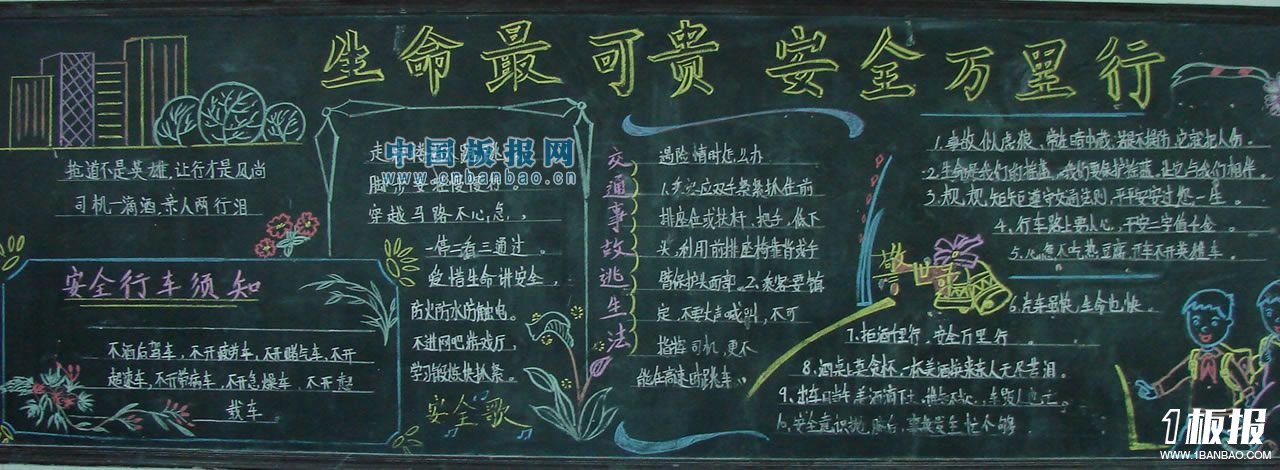 生命最可贵 安全万里行
抢道不是英雄,让行才是风尚
司机一滴酒,亲人两行泪
安全行车须知
不酒后驾车,不开疲劳车,不开赌气车,不开
超速车,不开带病车,不开急燥车,不开超
载车
走
中国板报网
www.cnbanbao.cn
穿越马路不心急,
一停二看三通过。
爱惜生命讲安全,
防火防水防触电。
不进网吧游戏厅,
学习锻炼快抓紧。
安全歌
交通事故逃生法
遇险情时怎么办
1.应双手紧紧抓住前
排座位或扶杆、把手,低下
头,利用前排座椅靠背或手
臂保护头面部。2.乘客要镇
定,不要大声喊叫,不可
指挥司机,更不
能在高速时跳车。
警世钟
1.事故似虎狼,常在暗中藏,若是不提防,它就把人伤。
2.生命是我们的摇篮,我们要保护摇篮,让它与我们相伴。
3.规规矩矩遵守交通法则,平平安安过您一生。
4.行车路上要小心,平安二字值千金。
5.心急不吃热豆腐,开车不开英雄车。
6.汽车虽快,生命也快。
7.拒酒千里行,安全万里行。
8.酒桌上莫贪杯,一杯美酒换来亲人无尽苦泪。
9.出车时当
10.安全意识
1板报
WWW.1BANBAO.COM